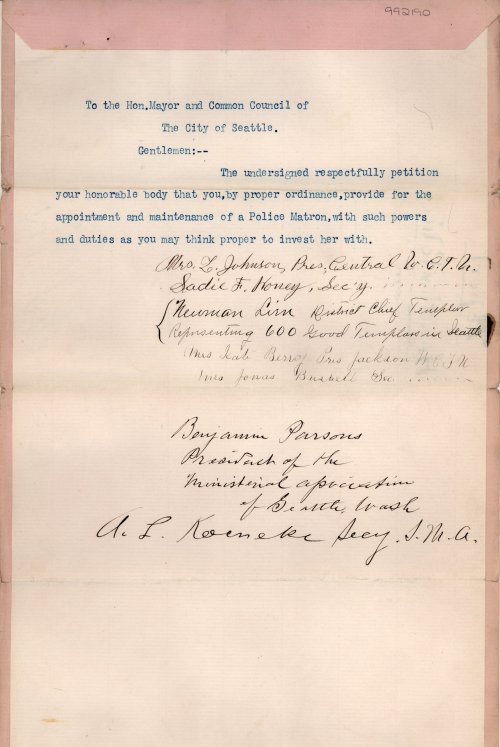 992190
To the Hon.Mayor and Common Council of
The City of Seattle.
Gentlemen:--
The undersigned respectfully petition
your honorable body that you,by proper ordinance,provide for the
appointment and maintenance of a Police Matron,with such powers
and duties as you may think proper to invest her with.
Mrs. L. Johnson, Pres. Central W. C. T. U.
Sadie F. Honey, Sec'y.
Newman Linn District Chief Templar
Representing 600 Good Templars in Seattle
Mrs Kate Berry Pres Jackson W C T U
Mrs Jonas Bushell Sec
Benjamin Parsons
President of the
Ministerial association
of Seattle, Wash
A. L. Koeneke Secy. S. M. A.